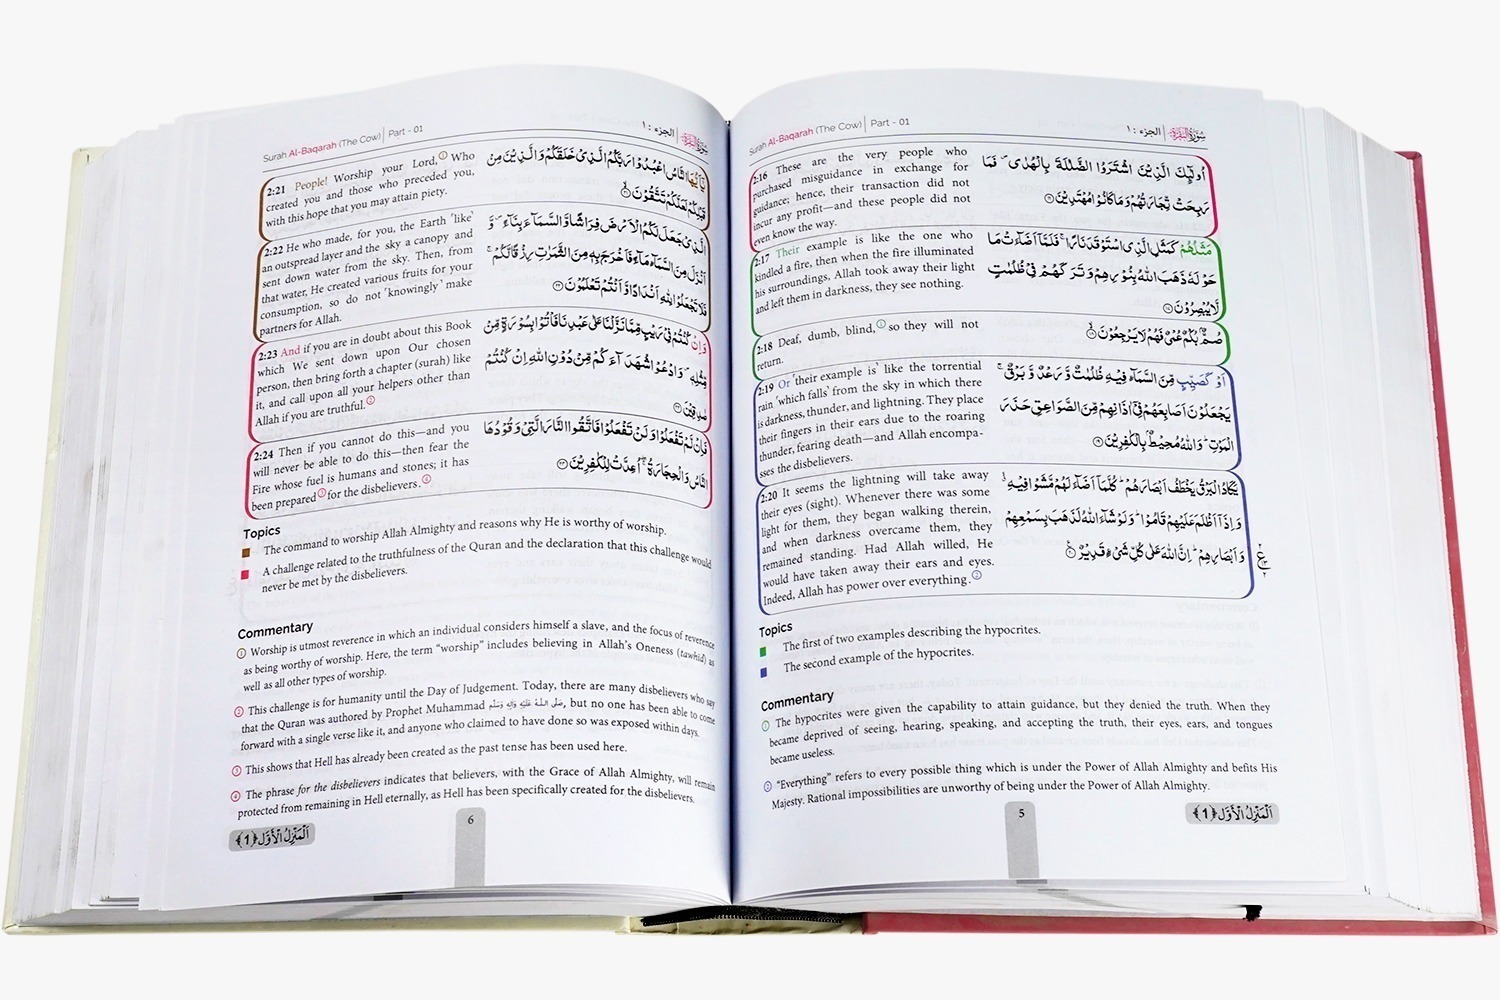 Surah Al-Baqarah (The Cow) | Part - 01
الجزء : ١
سُوْرَةُ الْبَقَرَة
2:16 These are the very people who
purchased misguidance in exchange for
guidance; hence, their transaction did not
incur any profit—and these people did not
even know the way.
اُولٰٓئِكَ الَّذِيْنَ اشْتَرَوُا الضَّلٰلَةَ بِالْهُدٰى ۪ فَمَا
رَبِحَتْ تِّجَارَتُهُمْ وَمَا كَانُوْا مُهْتَدِيْنَ ﴿١٦﴾
2:17 Their example is like the one who
kindled a fire, then when the fire illuminated
his surroundings, Allah took away their light
and left them in darkness, they see nothing.
مَثَلُهُمْ كَمَثَلِ الَّذِى اسْتَوْقَدَ نَارًا ۚ فَلَمَّاۤ اَضَآءَتْ مَا
حَوْلَهٗ ذَهَبَ اللّٰهُ بِنُوْرِهِمْ وَتَرَكَهُمْ فِىْ ظُلُمٰتٍ
لَّا يُبْصِرُوْنَ ﴿١٧﴾
2:18 Deaf, dumb, blind,① so they will not
return.
صُمٌّۢ بُكْمٌ عُمْىٌ فَهُمْ لَا يَرْجِعُوْنَ ﴿١٨﴾
2:19 Or ‛their example is’ like the torrential
rain ‛which falls’ from the sky in which there
is darkness, thunder, and lightning. They place
their fingers in their ears due to the roaring
thunder, fearing death—and Allah encompa-
sses the disbelievers.
اَوْ كَصَيِّبٍ مِّنَ السَّمَآءِ فِيْهِ ظُلُمٰتٌ وَّرَعْدٌ وَّبَرْقٌ ۚ
يَجْعَلُوْنَ اَصَابِعَهُمْ فِىْۤ اٰذَانِهِمْ مِّنَ الصَّوَاعِقِ حَذَرَ
الْمَوْتِ ؕ وَاللّٰهُ مُحِيْطٌۢ بِالْكٰفِرِيْنَ ﴿١٩﴾
2:20 It seems the lightning will take away
their eyes (sight). Whenever there was some
light for them, they began walking therein,
and when darkness overcame them, they
remained standing. Had Allah willed, He
would have taken away their ears and eyes.
Indeed, Allah has power over everything.②
يَكَادُ الْبَرْقُ يَخْطَفُ اَبْصَارَهُمْ ؕ كُلَّمَاۤ اَضَآءَ لَهُمْ مَّشَوْا فِيْهِ ۙ
وَاِذَاۤ اَظْلَمَ عَلَيْهِمْ قَامُوْا ؕ وَلَوْ شَآءَ اللّٰهُ لَذَهَبَ بِسَمْعِهِمْ
وَاَبْصَارِهِمْ ؕ اِنَّ اللّٰهَ عَلٰى كُلِّ شَىْءٍ قَدِيْرٌ ﴿٢٠﴾
Topics
The first of two examples describing the hypocrites.
The second example of the hypocrites.
Commentary
① The hypocrites were given the capability to attain guidance, but they denied the truth. When they
became deprived of seeing, hearing, speaking, and accepting the truth, their eyes, ears, and tongues
became useless.
② “Everything” refers to every possible thing which is under the Power of Allah Almighty and befits His
Majesty. Rational impossibilities are unworthy of being under the Power of Allah Almighty.
5
اَلْمَنْزِلُ الْاَوَّل ﴿1﴾
Surah Al-Baqarah (The Cow) | Part - 01
الجزء : ١
سُوْرَةُ الْبَقَرَة
2:21 People! Worship your Lord,① Who
created you and those who preceded you,
with this hope that you may attain piety.
يٰۤاَيُّهَا النَّاسُ اعْبُدُوْا رَبَّكُمُ الَّذِىْ خَلَقَكُمْ وَالَّذِيْنَ مِنْ
قَبْلِكُمْ لَعَلَّكُمْ تَتَّقُوْنَ ﴿٢١﴾
2:22 He who made, for you, the Earth ‛like’
an outspread layer and the sky a canopy and
sent down water from the sky. Then, from
that water, He created various fruits for your
consumption, so do not ‛knowingly’ make
partners for Allah.
الَّذِىْ جَعَلَ لَكُمُ الْاَرْضَ فِرَاشًا وَّالسَّمَآءَ بِنَآءً ۪ وَّ
اَنْزَلَ مِنَ السَّمَآءِ مَآءً فَاَخْرَجَ بِهٖ مِنَ الثَّمَرٰتِ رِزْقًا لَّكُمْ ۚ
فَلَا تَجْعَلُوْا لِلّٰهِ اَنْدَادًا وَّاَنْتُمْ تَعْلَمُوْنَ ﴿٢٢﴾
2:23 And if you are in doubt about this Book
which We sent down upon Our chosen
person, then bring forth a chapter (surah) like
it, and call upon all your helpers other than
Allah if you are truthful.②
وَاِنْ كُنْتُمْ فِىْ رَيْبٍ مِّمَّا نَزَّلْنَا عَلٰى عَبْدِنَا فَاْتُوْا بِسُوْرَةٍ مِّنْ
مِّثْلِهٖ ۪ وَادْعُوْا شُهَدَآءَكُمْ مِّنْ دُوْنِ اللّٰهِ اِنْ كُنْتُمْ
صٰدِقِيْنَ ﴿٢٣﴾
2:24 Then if you cannot do this—and you
will never be able to do this—then fear the
Fire whose fuel is humans and stones; it has
been prepared③ for the disbelievers.④
فَاِنْ لَّمْ تَفْعَلُوْا وَلَنْ تَفْعَلُوْا فَاتَّقُوا النَّارَ الَّتِىْ وَقُوْدُهَا
النَّاسُ وَالْحِجَارَةُ ۖۚ اُعِدَّتْ لِلْكٰفِرِيْنَ ﴿٢٤﴾
Topics
The command to worship Allah Almighty and reasons why He is worthy of worship.
A challenge related to the truthfulness of the Quran and the declaration that this challenge would
never be met by the disbelievers.
Commentary
① Worship is utmost reverence in which an individual considers himself a slave, and the focus of reverence
as being worthy of worship. Here, the term “worship” includes believing in Allah’s Oneness (tawhid) as
well as all other types of worship.
② This challenge is for humanity until the Day of Judgement. Today, there are many disbelievers who say
that the Quran was authored by Prophet Muhammad صَلَّى اللّٰهُ عَلَيْهِ وَاٰلِهٖ وَسَلَّم, but no one has been able to come
forward with a single verse like it, and anyone who claimed to have done so was exposed within days.
③ This shows that Hell has already been created as the past tense has been used here.
④ The phrase for the disbelievers indicates that believers, with the Grace of Allah Almighty, will remain
protected from remaining in Hell eternally, as Hell has been specifically created for the disbelievers.
6
اَلْمَنْزِلُ الْاَوَّل ﴿1﴾